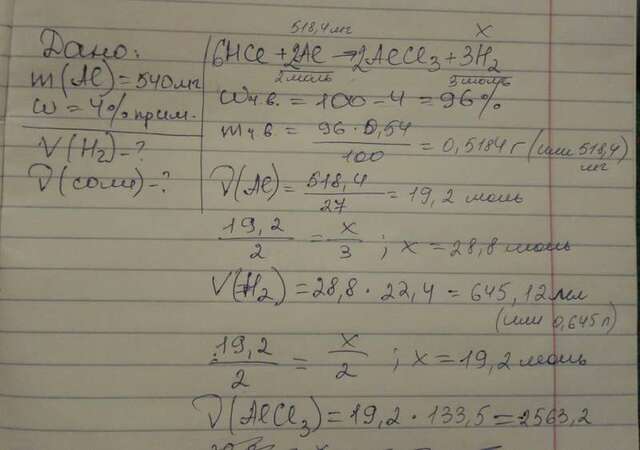 518,4мг x
Дано:
m(Al)=540мг
ω=4% прим.
V(H₂)-?
ν(соли)-?
6HCl+2Al→2AlCl₃+3H₂
2моль 3моль
ωч.в.=100-4=96%
mч.в=96·0,54/100=0,5184г(или 518,4)
мг
ν(Al)=518,4/27=19,2 моль
19,2/2=x/3; x=28,8 моль
V(H₂)=28,8·22,4=645,12мл
(или 0,645л)
19,2/2=x/2; x=19,2моль
ν(AlCl₃)=19,2·133,5=2563,2